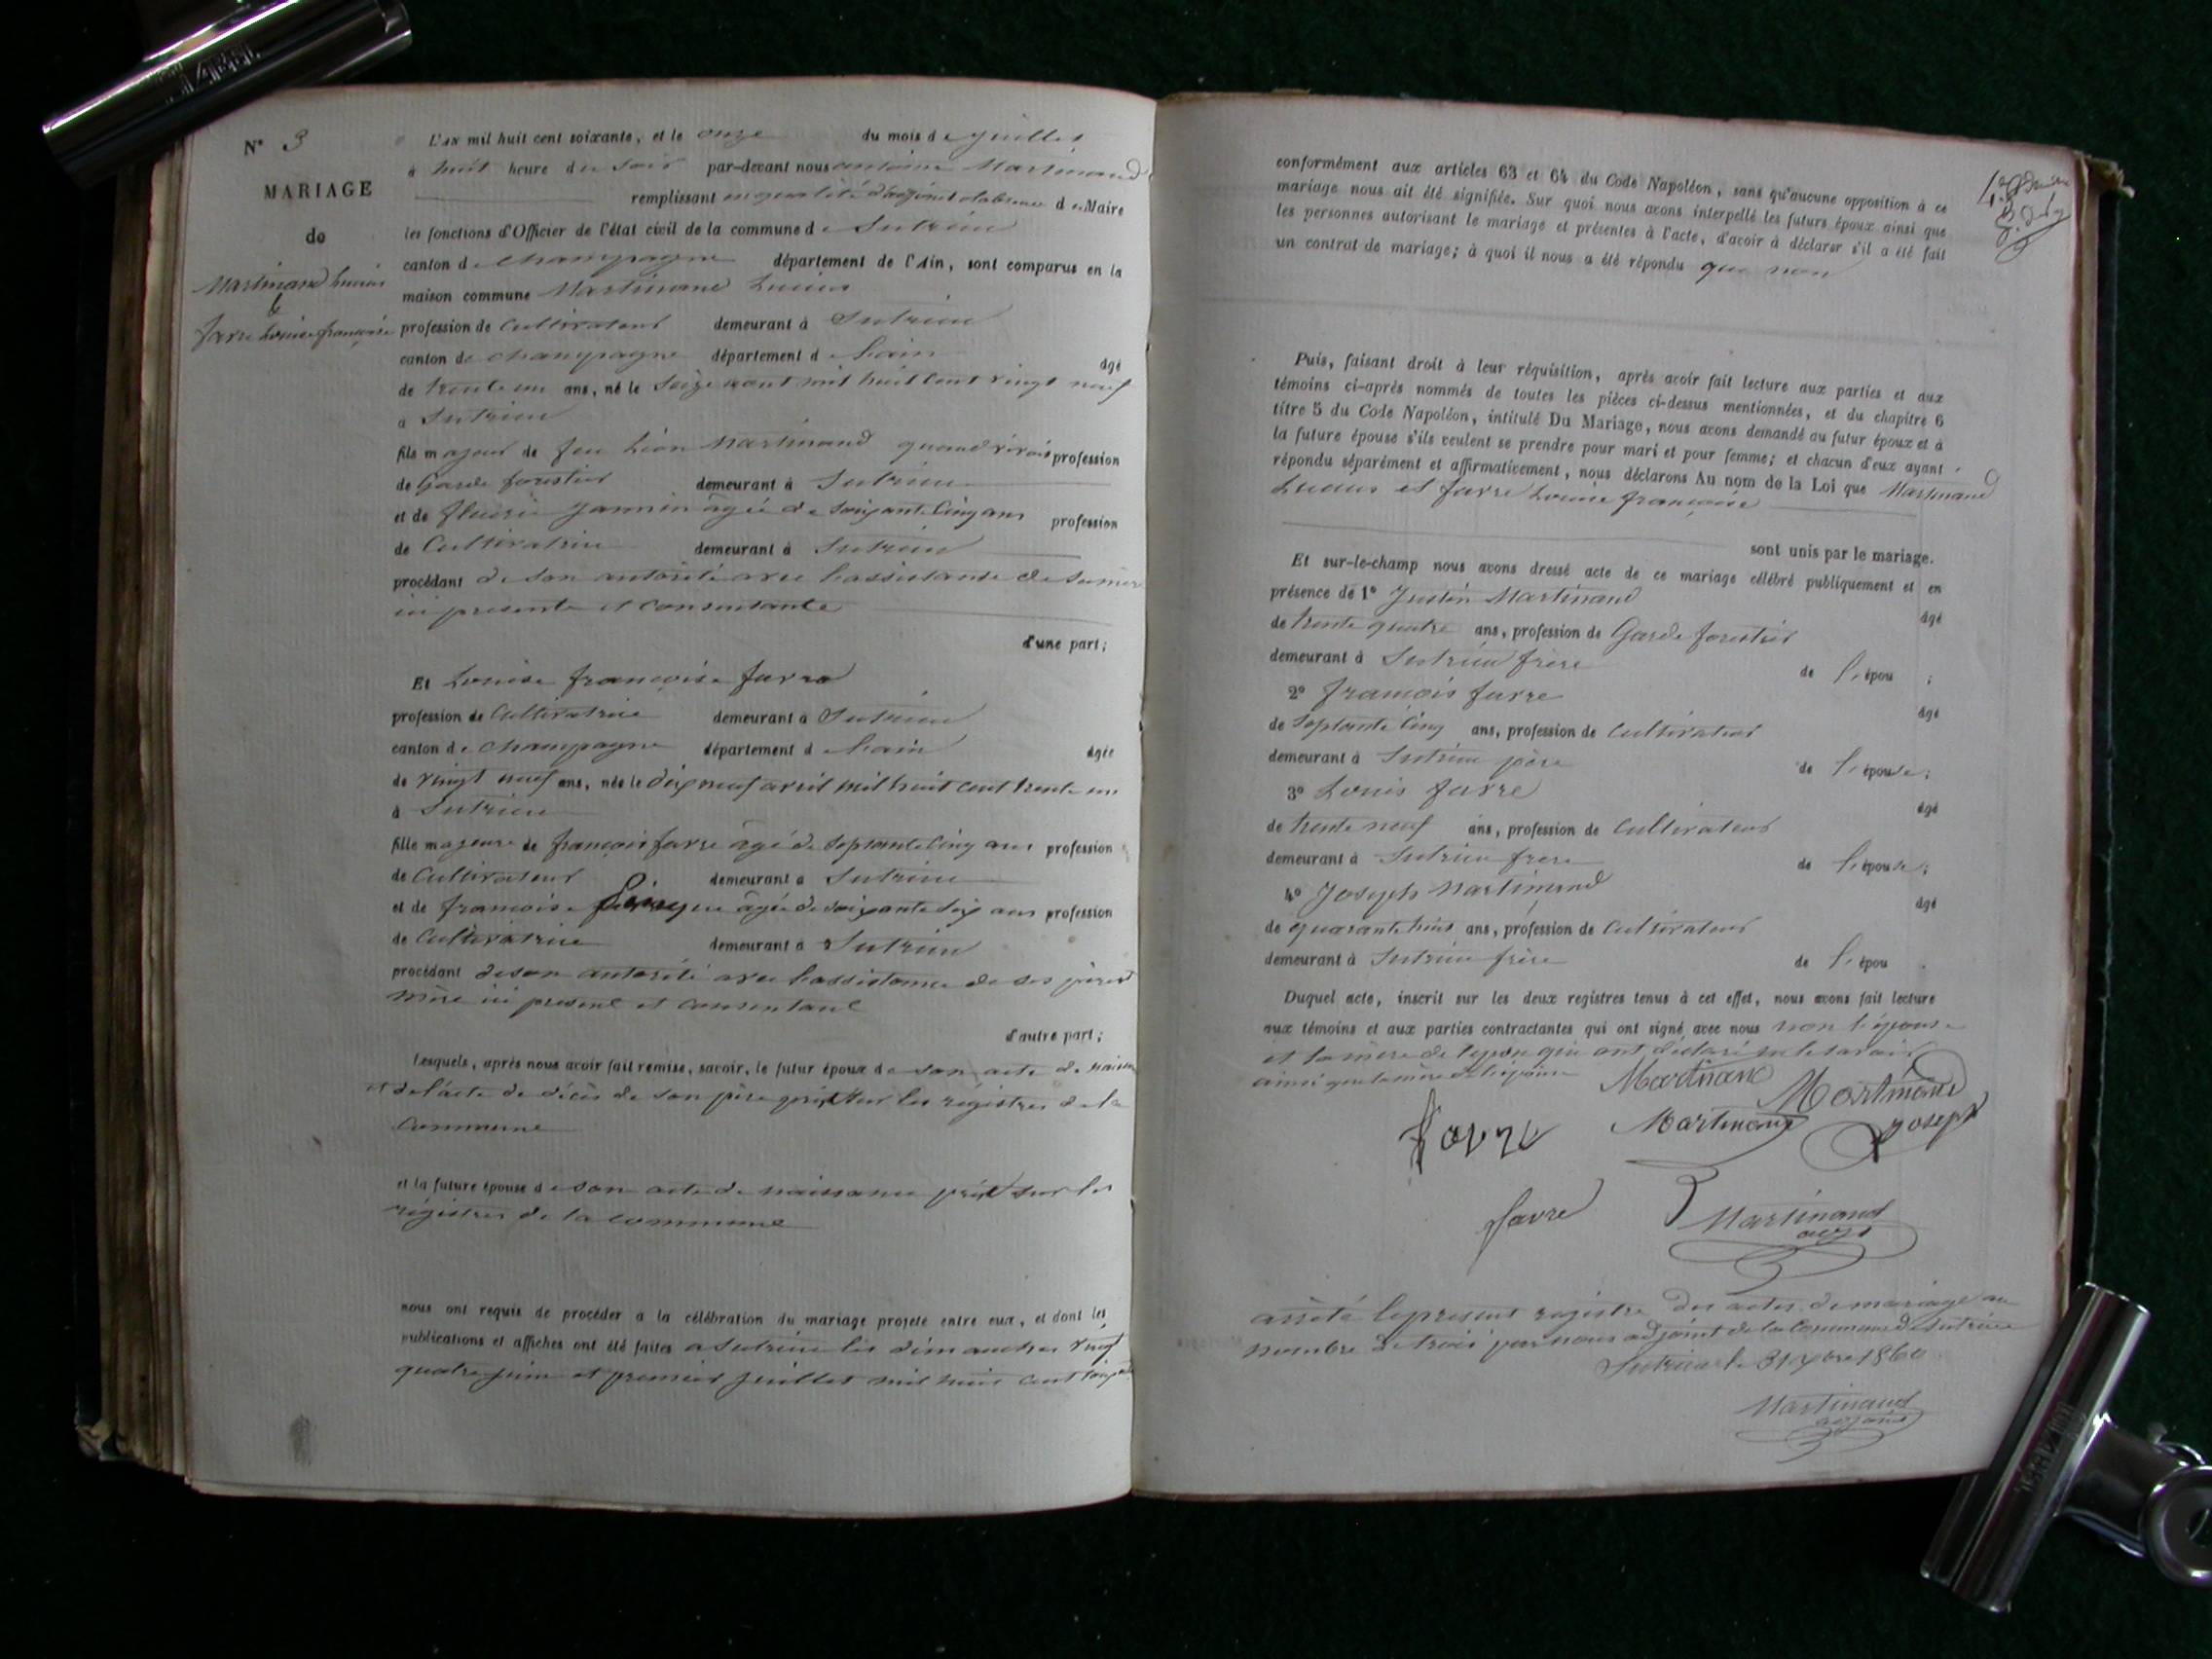 N° 3
MARIAGE
de
Martinand Lucius
&
favre Louise françoise
L'AN mil huit cent soixante, et le onze du mois de juillet
à huit heure du soir par-devant nous antoine Martinand
remplissant en qualité d'adjoint de Maire
les fonctions d'Officier de l'état civil de la commune de Sutrieu
canton de champagne département de l'Ain, sont comparus en la
maison commune Martinand Lucius
profession de Cultivateur demeurant à Sutrieu
canton de champagne département de Lain âgé
de trente un ans, né le Seize aout mil huit cent vingt neuf
à Sutrieu
fils majeur de feu Léon Martinand quand vivais profession
de Garde forestier demeurant à Sutrieu
et de fleurie Jannin âgée de Soixante Cinq ans profession
de Cultivatrice demeurant à Sutrieu
procédant de son autorité avec lassistance de sa mère
ici presente et consentante
d'une part;
Et Louise françoise favre
profession de Cultivatrice demeurant à Sutrieu
canton de champagne département de Lain âgée
de vingt neuf ans, née le dix neuf avril mil huit cent trente un
à Sutrieu
fille majeure de françois favre âgé de Septante Cinq ans profession
de Cultivateur demeurant à Sutrieu
et de francoise âgée de soixante dix ans profession
de Cultivatrice demeurant à Sutrieu
procédant de son autorité avec lassistance de ses père et
mère ici present et consentant
d'autre part;
Lesquels, après nous avoir fait remise, savoir, le futur époux de son acte de
et de l'acte de décès de son père sur les régistres de la
Commune
et la future épouse de son acte de naissance sur les
régistres de la commune
nous ont requis de procéder à la célébration du mariage projeté entre eux, et dont les
publications et affiches ont été faites a Sutrieu les dimanches vingt
quatre juin et premier juillet mil huit cent
conformément aux articles 63 et 64 du Code Napoléon, sans qu'aucune opposition à ce
mariage nous ait été signifiée. Sur quoi nous avons interpellé les futurs époux ainsi que
les personnes autorisant le mariage et présentes à l'acte, d'avoir à déclarer s'il a été fait
un contrat de mariage; à quoi il nous a été répondu que non
Puis, faisant droit à leur réquisition, après avoir fait lecture aux parties et aux
témoins ci-après nommés de toutes les pièces ci-dessus mentionnées, et du chapitre 6
titre 5 du Code Napoléon, intitulé Du Mariage, nous avons demandé au futur époux et à
la future épouse s'ils veulent se prendre pour mari et pour femme; et chacun d'eux ayant
répondu séparément et affirmativement, nous déclarons Au nom de la Loi que Martinand
Lucius et favre Louise françoise
sont unis par le mariage.
Et sur-le-champ nous avons dressé acte de ce mariage célébré publiquement et en
présence de 1° Justin Martinand âgé
de trente quatre ans, profession de Garde forestier
demeurant à Sutrieu frère de l'épou ;
2° francois favre âgé
de Septante Cinq ans, profession de Cultivateur
demeurant à Sutrieu père de l'épouse;
3° Louis favre âgé
de trente neuf ans, profession de Cultivateur
demeurant à Sutrieu frere de l'épouse;
4° Joseph Martinand âgé
de quarante huit ans, profession de Cultivateur
demeurant à Sutrieu frère de l'épou
Duquel acte, inscrit sur les deux registres tenus à cet effet, nous avons fait lecture
aux témoins et aux parties contractantes qui ont signé avec nous non l'épouse
et la mère de qui ont déclaré ne le savoir
ainsi que la mère
Martinand Martinand
favre Martinand joseph
favre Martinand
arrêté le present registre des actes de mariage au
nombre de trois par nous adjoint de la Commune de Sutrieu
Sutrieu le 31 xbre 1860
Martinand
adjoint